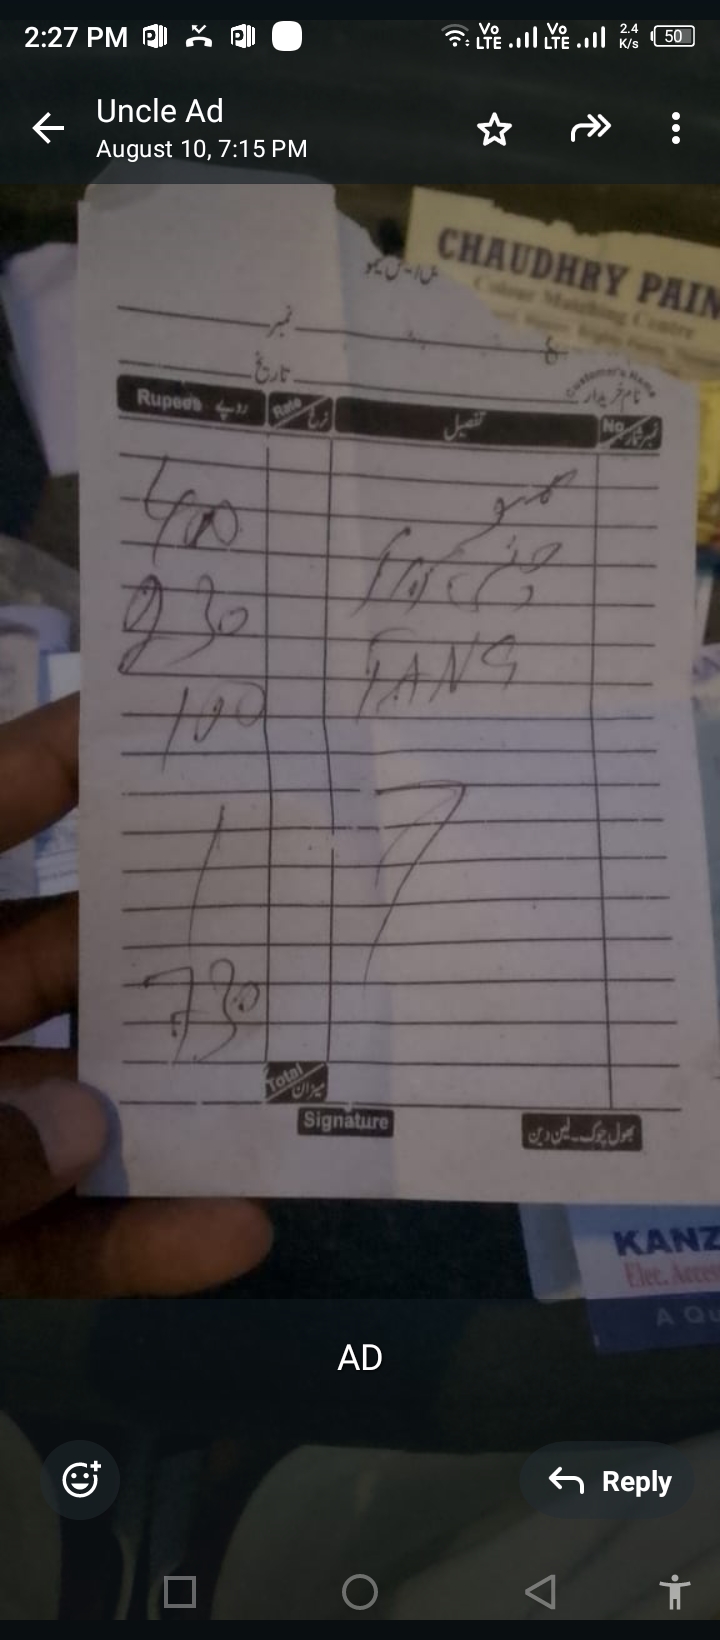 2:27 PM Vo LTE Vo LTE 2.4 K/s 50
Uncle Ad
August 10, 7:15 PM
CHAUDHRY PAIN
Colour Matching Centre
نمبر
تاریخ
Customer's Name
نام خریدار
Rupees روپے Rate نرخ تفصیل No نمبر شمار
سموسے
400
چینی
230
TANG
100
730
Total میزان
Signature بھول چوک۔لین دین
KANZ
Elec. Acces
A Qu
AD
Reply